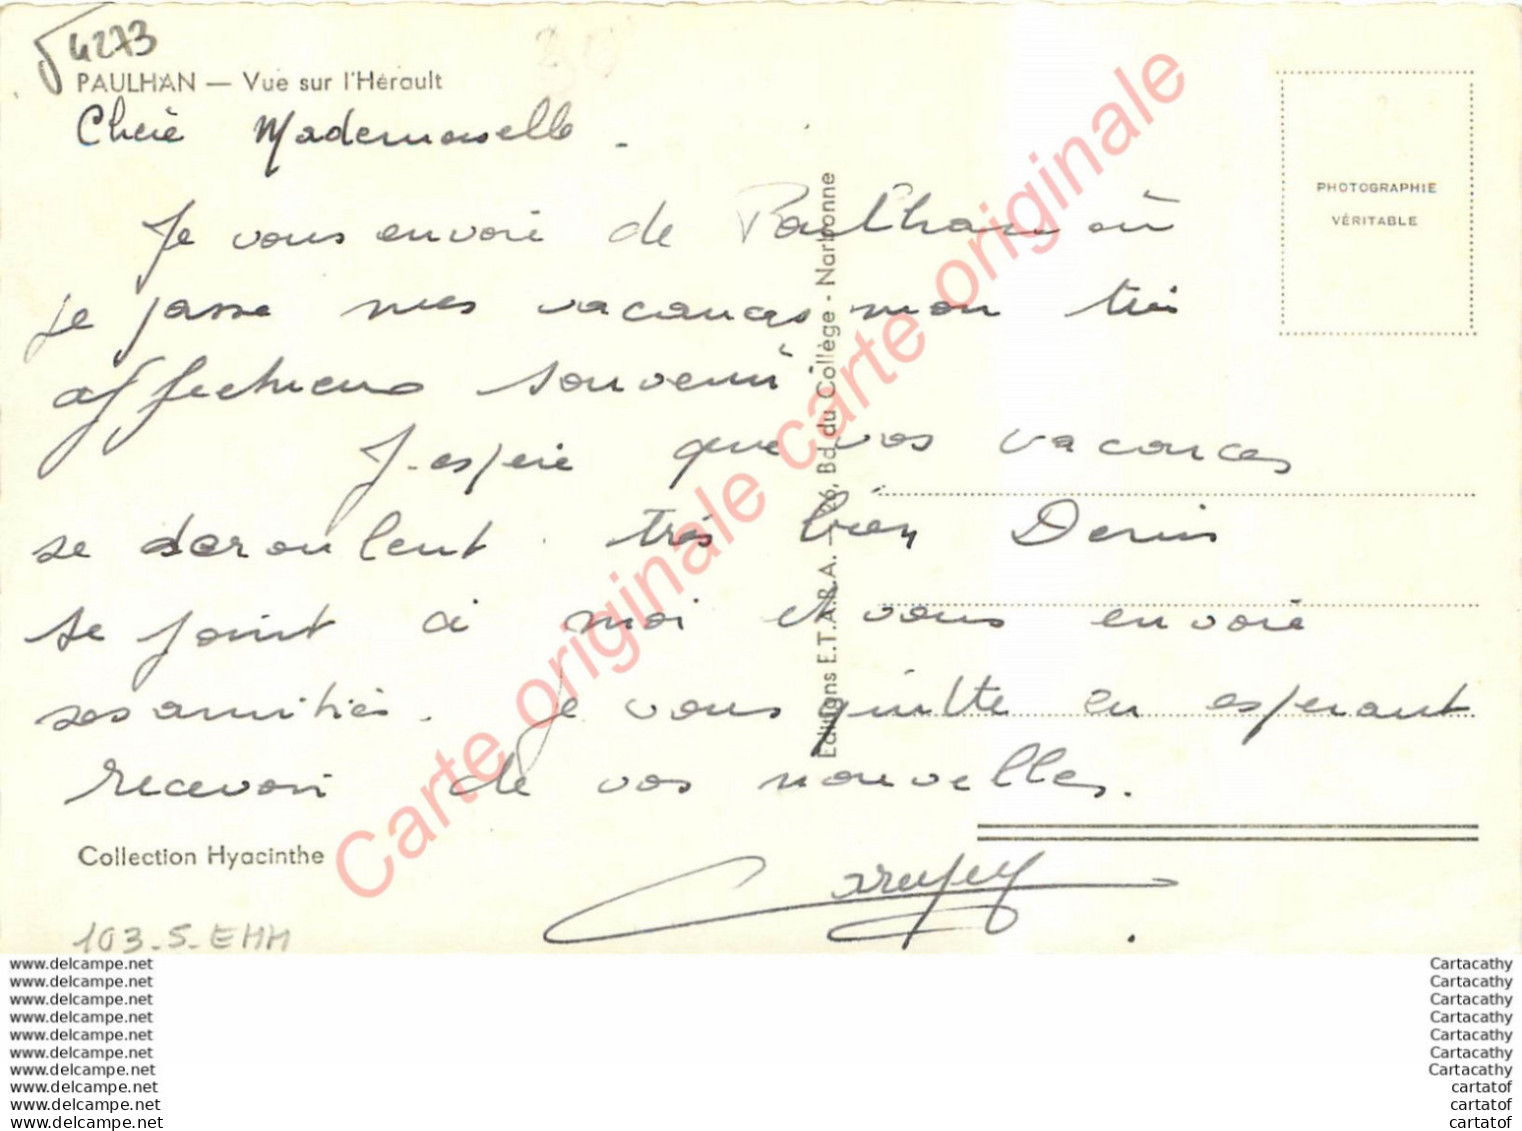 4273
PAULHAN — Vue sur l'Hérault
Chère Mademoiselle.
Je vous envoie de Paulhan où
je passe mes vacances mon très
affectueux souvenir
J'espère que vos vacances
se deroulent très bien Denis
se joint à moi et vous envoie
ses amitiés. Je vous quitte en esperant
recevoir de vos nouvelles.
Collection Hyacinthe
103-S-EHM
PHOTOGRAPHIE
VÉRITABLE
Editions E.T.A.R.A. - 26, Bd. du Collège - Narbonne
Carte originale carte originale
www.delcampe.net
www.delcampe.net
www.delcampe.net
www.delcampe.net
www.delcampe.net
www.delcampe.net
www.delcampe.net
www.delcampe.net
www.delcampe.net
www.delcampe.net
Cartacathy
Cartacathy
Cartacathy
Cartacathy
Cartacathy
Cartacathy
Cartacathy
cartatof
cartatof
cartatof